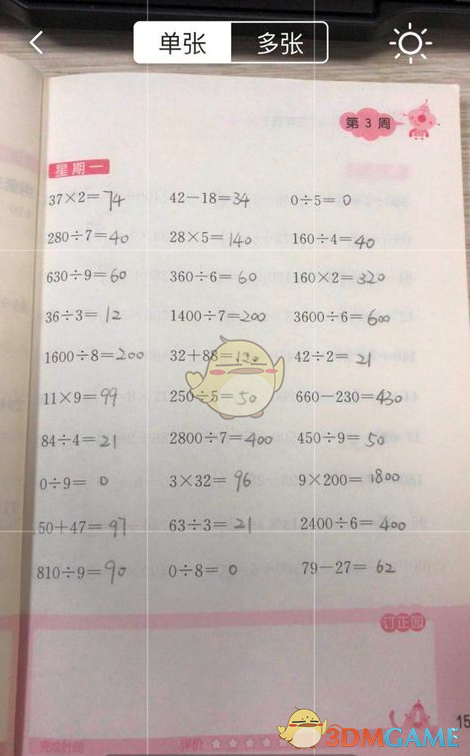 单张 多张
第 3 周
星期一
37×2=74 42-18=34 0÷5=0
280÷7=40 28×5=140 160÷4=40
630÷9=60 360÷6=60 160×2=320
36÷3=12 1400÷7=200 3600÷6=600
1600÷8=200 32+88=120 42÷2=21
11×9=99 250÷5=50 660-230=430
84÷4=21 2800÷7=400 450÷9=50
0÷9=0 3×32=96 9×200=1800
50+47=97 63÷3=21 2400÷6=400
810÷9=90 0÷8=0 79-27=62
订正园
15
完成时间 评价
3DMGAME